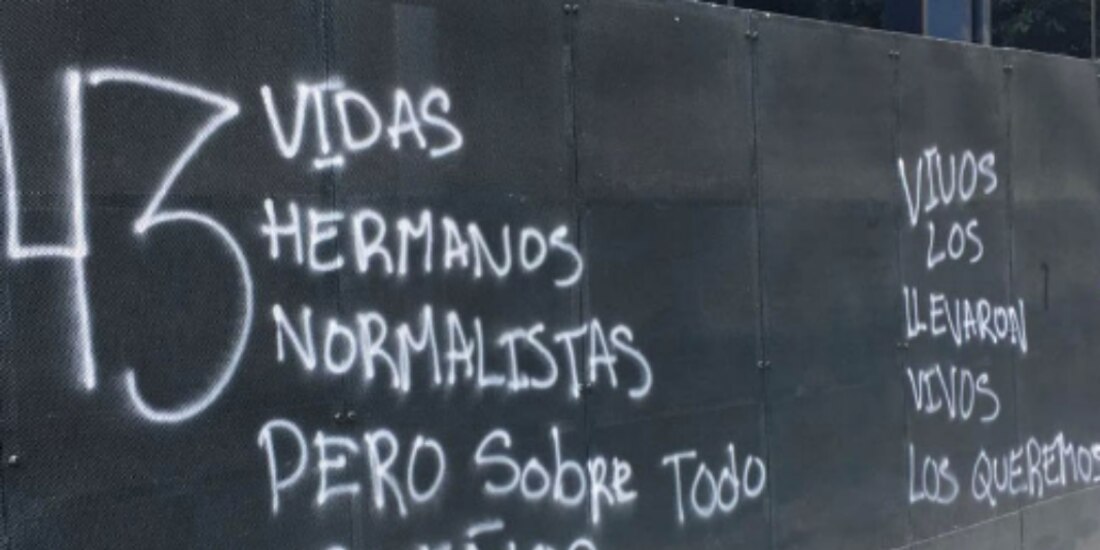 43 VIDAS
HERMANOS
NORMALISTAS
PERO SobRe Todo
VIVOS
LOS
LLEVARON
VIVOS
LOS QUEREMOS